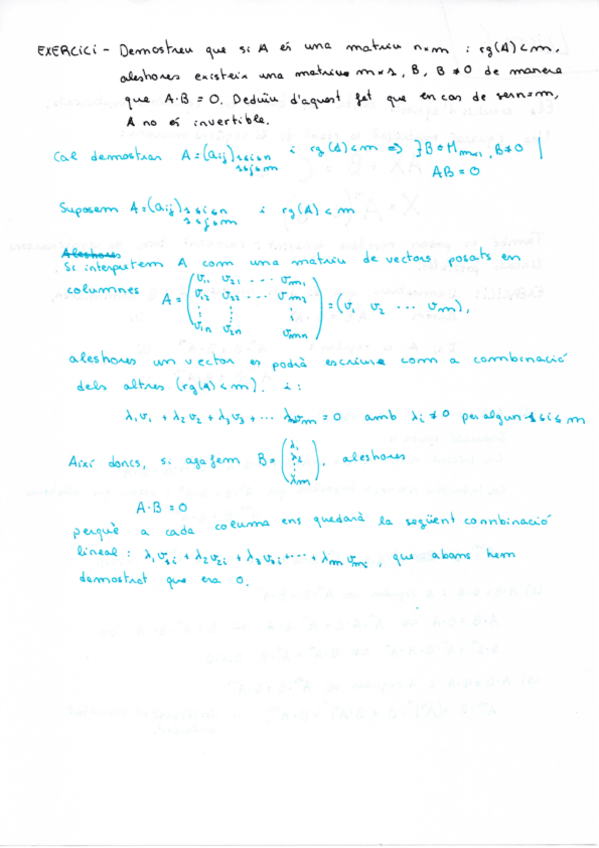 EXERCICI - Demostreu que si A és una matriu n×m i rg(A)<m,
aleshores existeix una matriu m×1, B, B≠0 de manera
que A·B=0. Deduïu d'aquest fet que en cas de ser n=m,
A no és invertible.
Cal demostrar A=(aij) 1≤i≤n 1≤j≤m i rg(A)<m ⇒ ∃B∈Mm×1, B≠0 |
AB=0
Suposem A=(aij) 1≤i≤n 1≤j≤m i rg(A)<m
Aleshores
Si interpretem A com una matriu de vectors posats en
columnes A = ( v11 v21 ... vm1
v12 v22 ... vm2
⋮ ⋮ ⋮
v1n v2n vmn ) = (v1 v2 ... vm),
aleshores un vector es podrà escriure com a combinació
dels altres (rg(A)<m). i:
λ1v1 + λ2v2 + λ3v3 + ... λmvm = 0 amb λi ≠ 0 per algun 1≤i≤m
Així doncs, si agafem B = ( λ1 λ2 ⋮ λm ), aleshores
A·B=0
perquè a cada columna ens quedarà la següent combinació
lineal: λ1v1i + λ2v2i + λ3v3i + ... + λmvmi, que abans hem
demostrat que era 0.